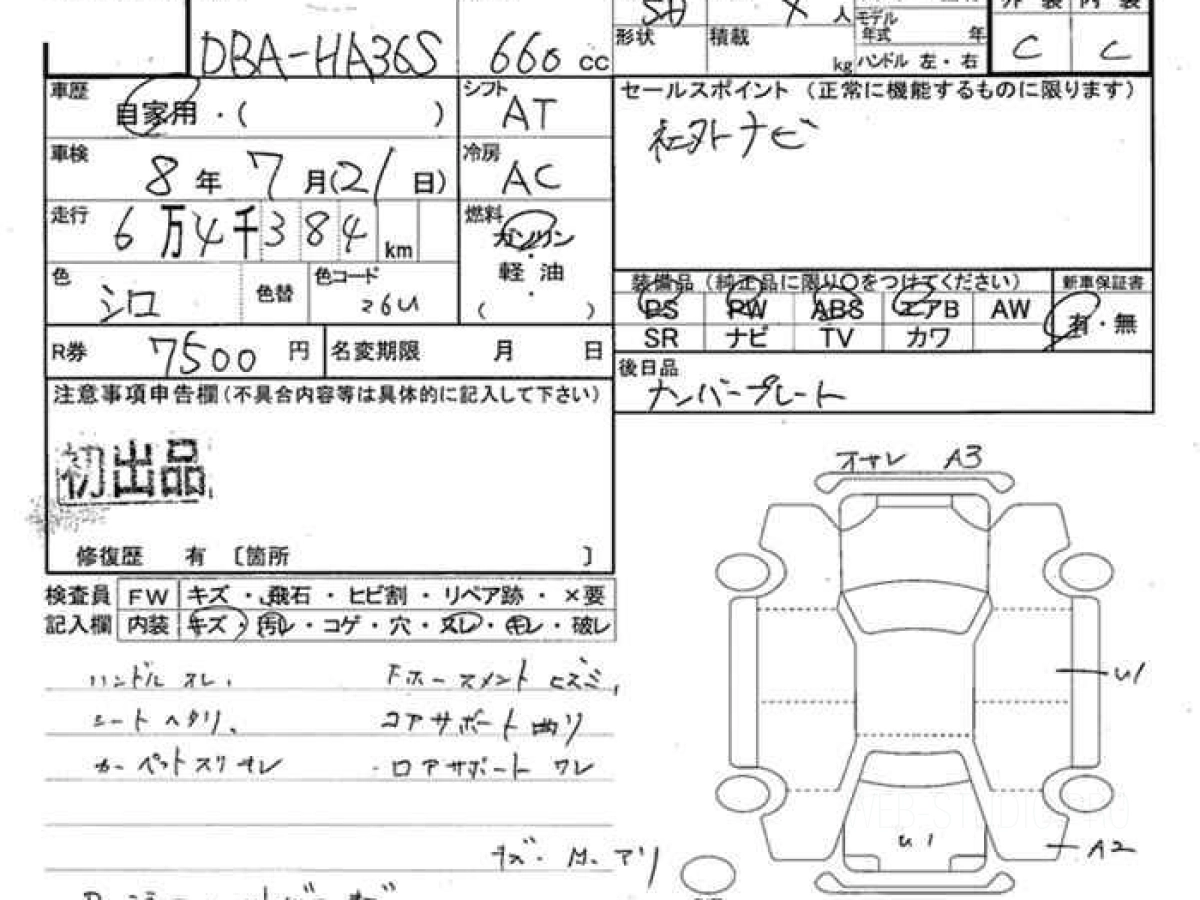 5D 人
モデル
年式 年
外装 内装
DBA-HA36S 660 cc 形状 積載 kg ハンドル 左・右 C C
車歴 自家用・( ) シフト AT セールスポイント（正常に機能するものに限ります）
社外ナビ
車検 8年 7月(21日) 冷房 AC
走行 6万4千384 km 燃料 ガソリン
軽油
( )
色 シロ 色替 色コード 26U
装備品（純正品に限り○をつけてください） 新車保証書
PS PW ABS エアB AW 有・無
SR ナビ TV カワ
R券 7500円 名変期限 月 日
後日品
ナンバープレート
注意事項申告欄(不具合内容等は具体的に記入して下さい)
初出品
修復歴 有 〔箇所 〕
オサレ A3
検査員 FW キズ・飛石・ヒビ割・リペア跡・×要
記入欄 内装 キズ・汚レ・コゲ・穴・スレ・キレ・破レ
ハンドル スレ、 Fホースメント ヒズミ、
シートヘタリ、 コアサポート曲リ
カーペットスリキレ ・ロアサポートワレ
U1
U1
A2
WEB-STUDIO PRO